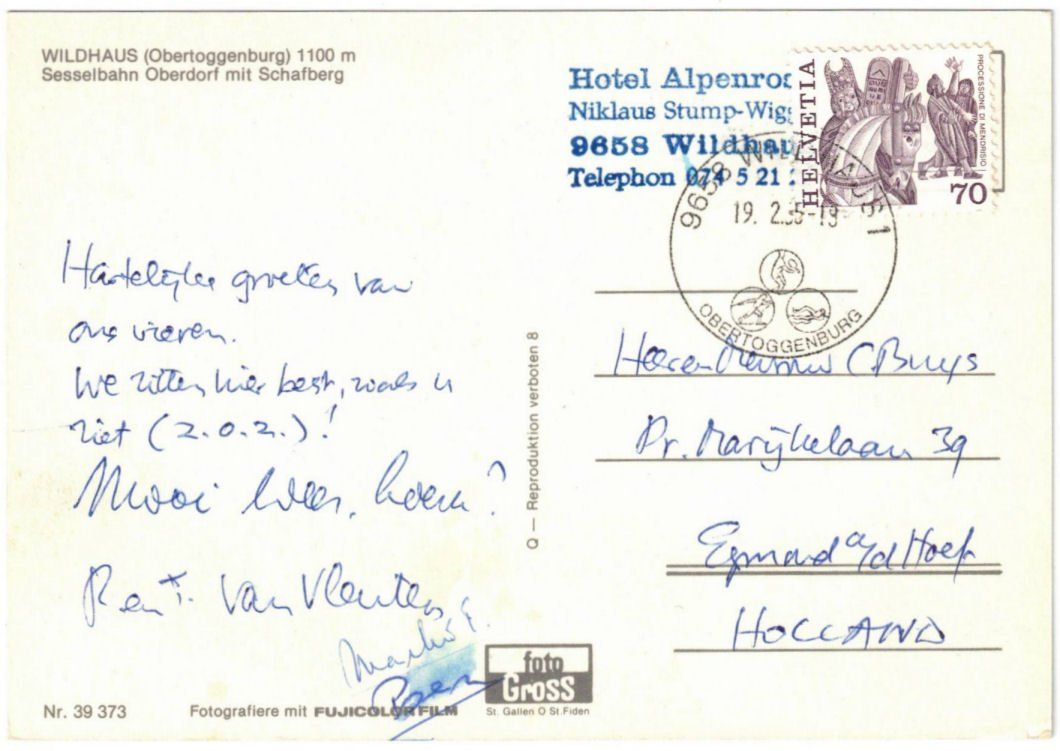 WILDHAUS (Obertoggenburg) 1100 m
Sesselbahn Oberdorf mit Schafberg
Hotel Alpenros
Niklaus Stump-Wigg
9658 Wildhau
Telephon 074 5 21
HELVETIA
PROCESSIONE DI MENDRISIO
70
9658 WILDHAUS 1
19. 2.85-19
OBERTOGGENBURG
Hartelijke groeten van
ons vieren.
We zitten hier best, zoals u
ziet (z.o.z.)!
Mooi weer, hoera?
R en T. van Vleuten
Q — Reproduktion verboten 8
C Buys
Pr. Marijkelaan 39
Egmond a/d Hoef
HOLLAND
foto
Gross
St. Gallen O St.Fiden
Nr. 39 373
Fotografiere mit FUJICOLOR FILM